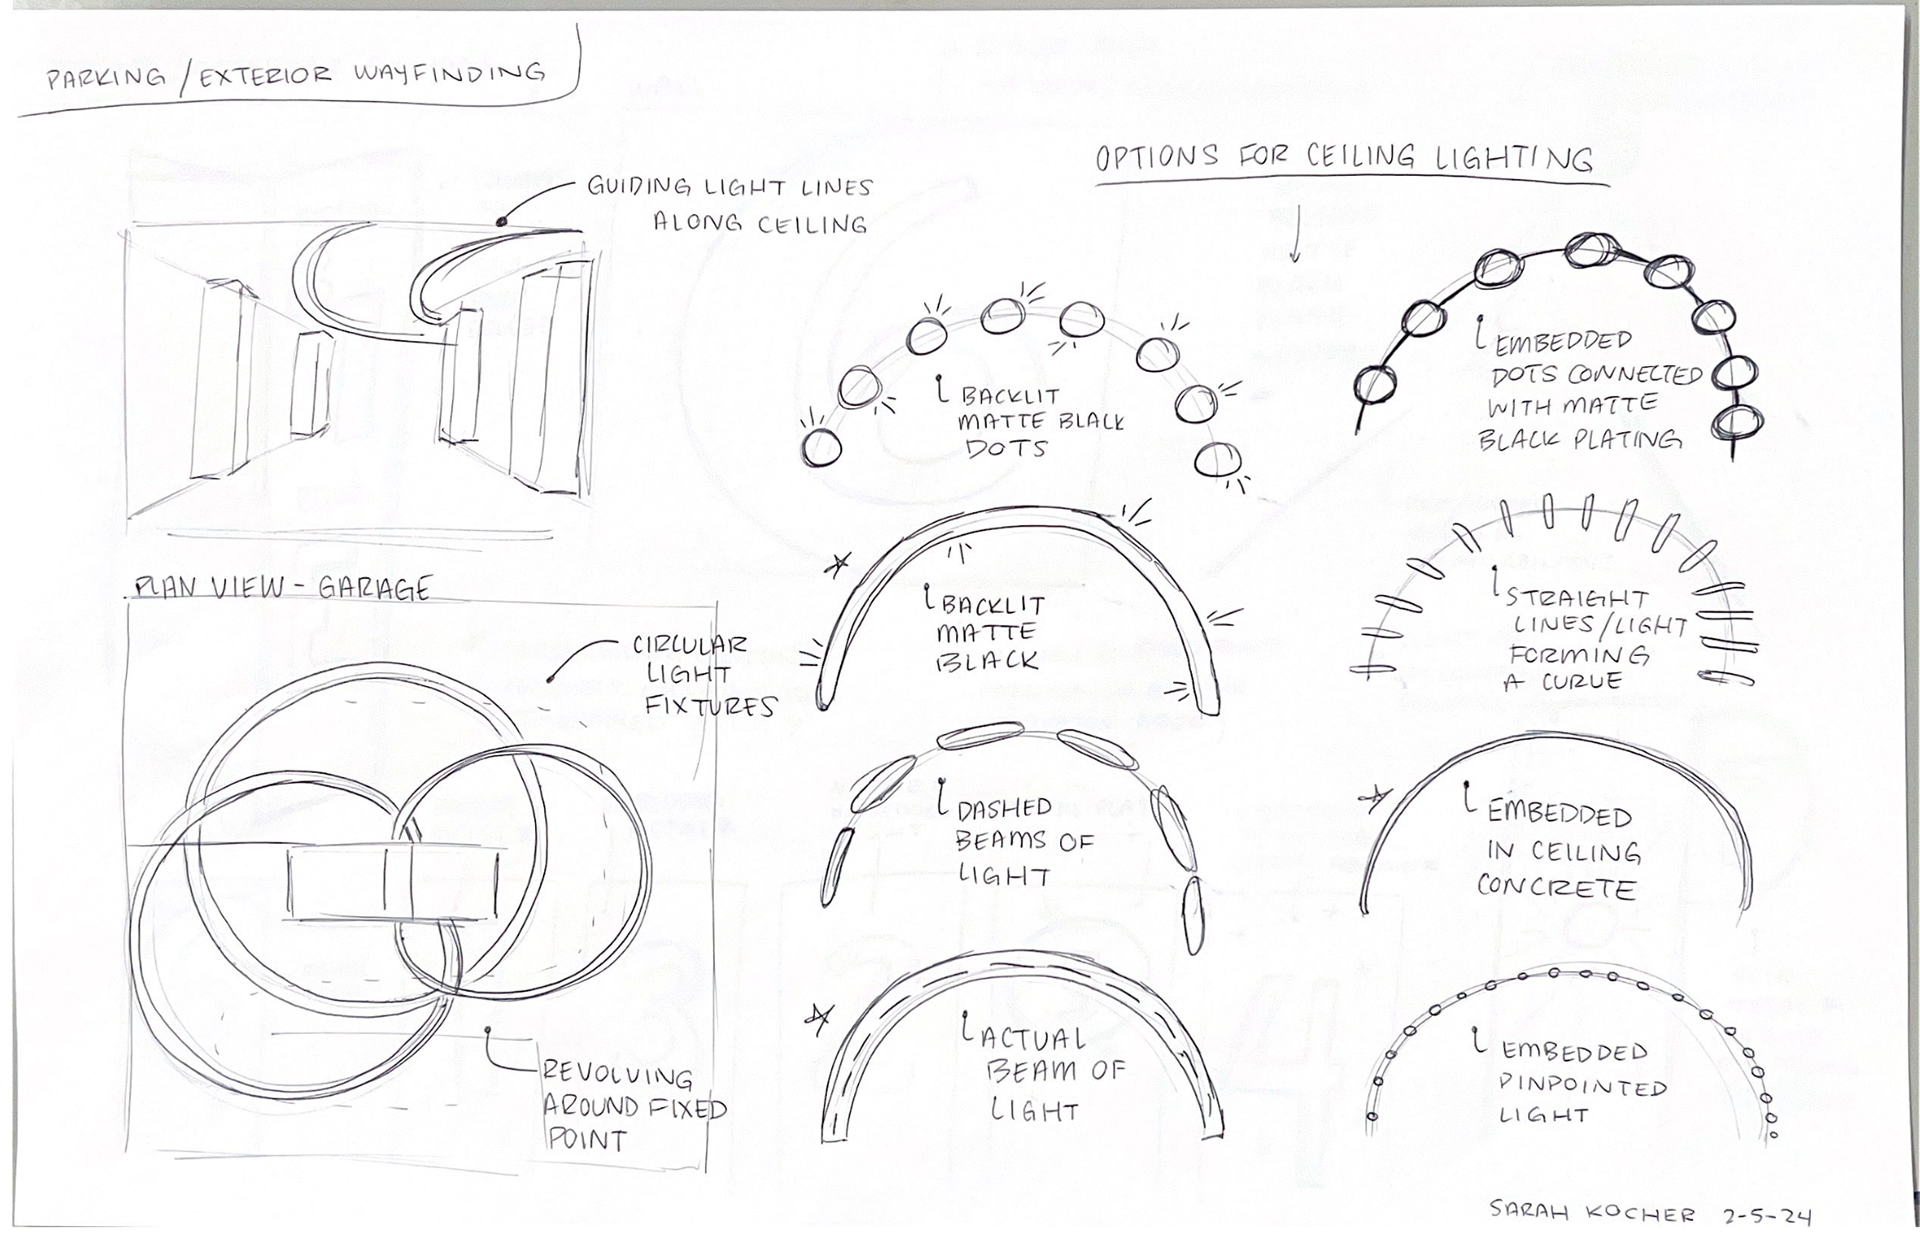 PARKING / EXTERIOR WAYFINDING
GUIDING LIGHT LINES
ALONG CEILING
PLAN VIEW - GARAGE
CIRCULAR
LIGHT
FIXTURES
REVOLVING
AROUND FIXED
POINT
OPTIONS FOR CEILING LIGHTING
BACKLIT
MATTE BLACK
DOTS
EMBEDDED
DOTS CONNECTED
WITH MATTE
BLACK PLATING
BACKLIT
MATTE
BLACK
STRAIGHT
LINES/LIGHT
FORMING
A CURVE
DASHED
BEAMS OF
LIGHT
EMBEDDED
IN CEILING
CONCRETE
ACTUAL
BEAM OF
LIGHT
EMBEDDED
PINPOINTED
LIGHT
SARAH KOCHER 2-5-24